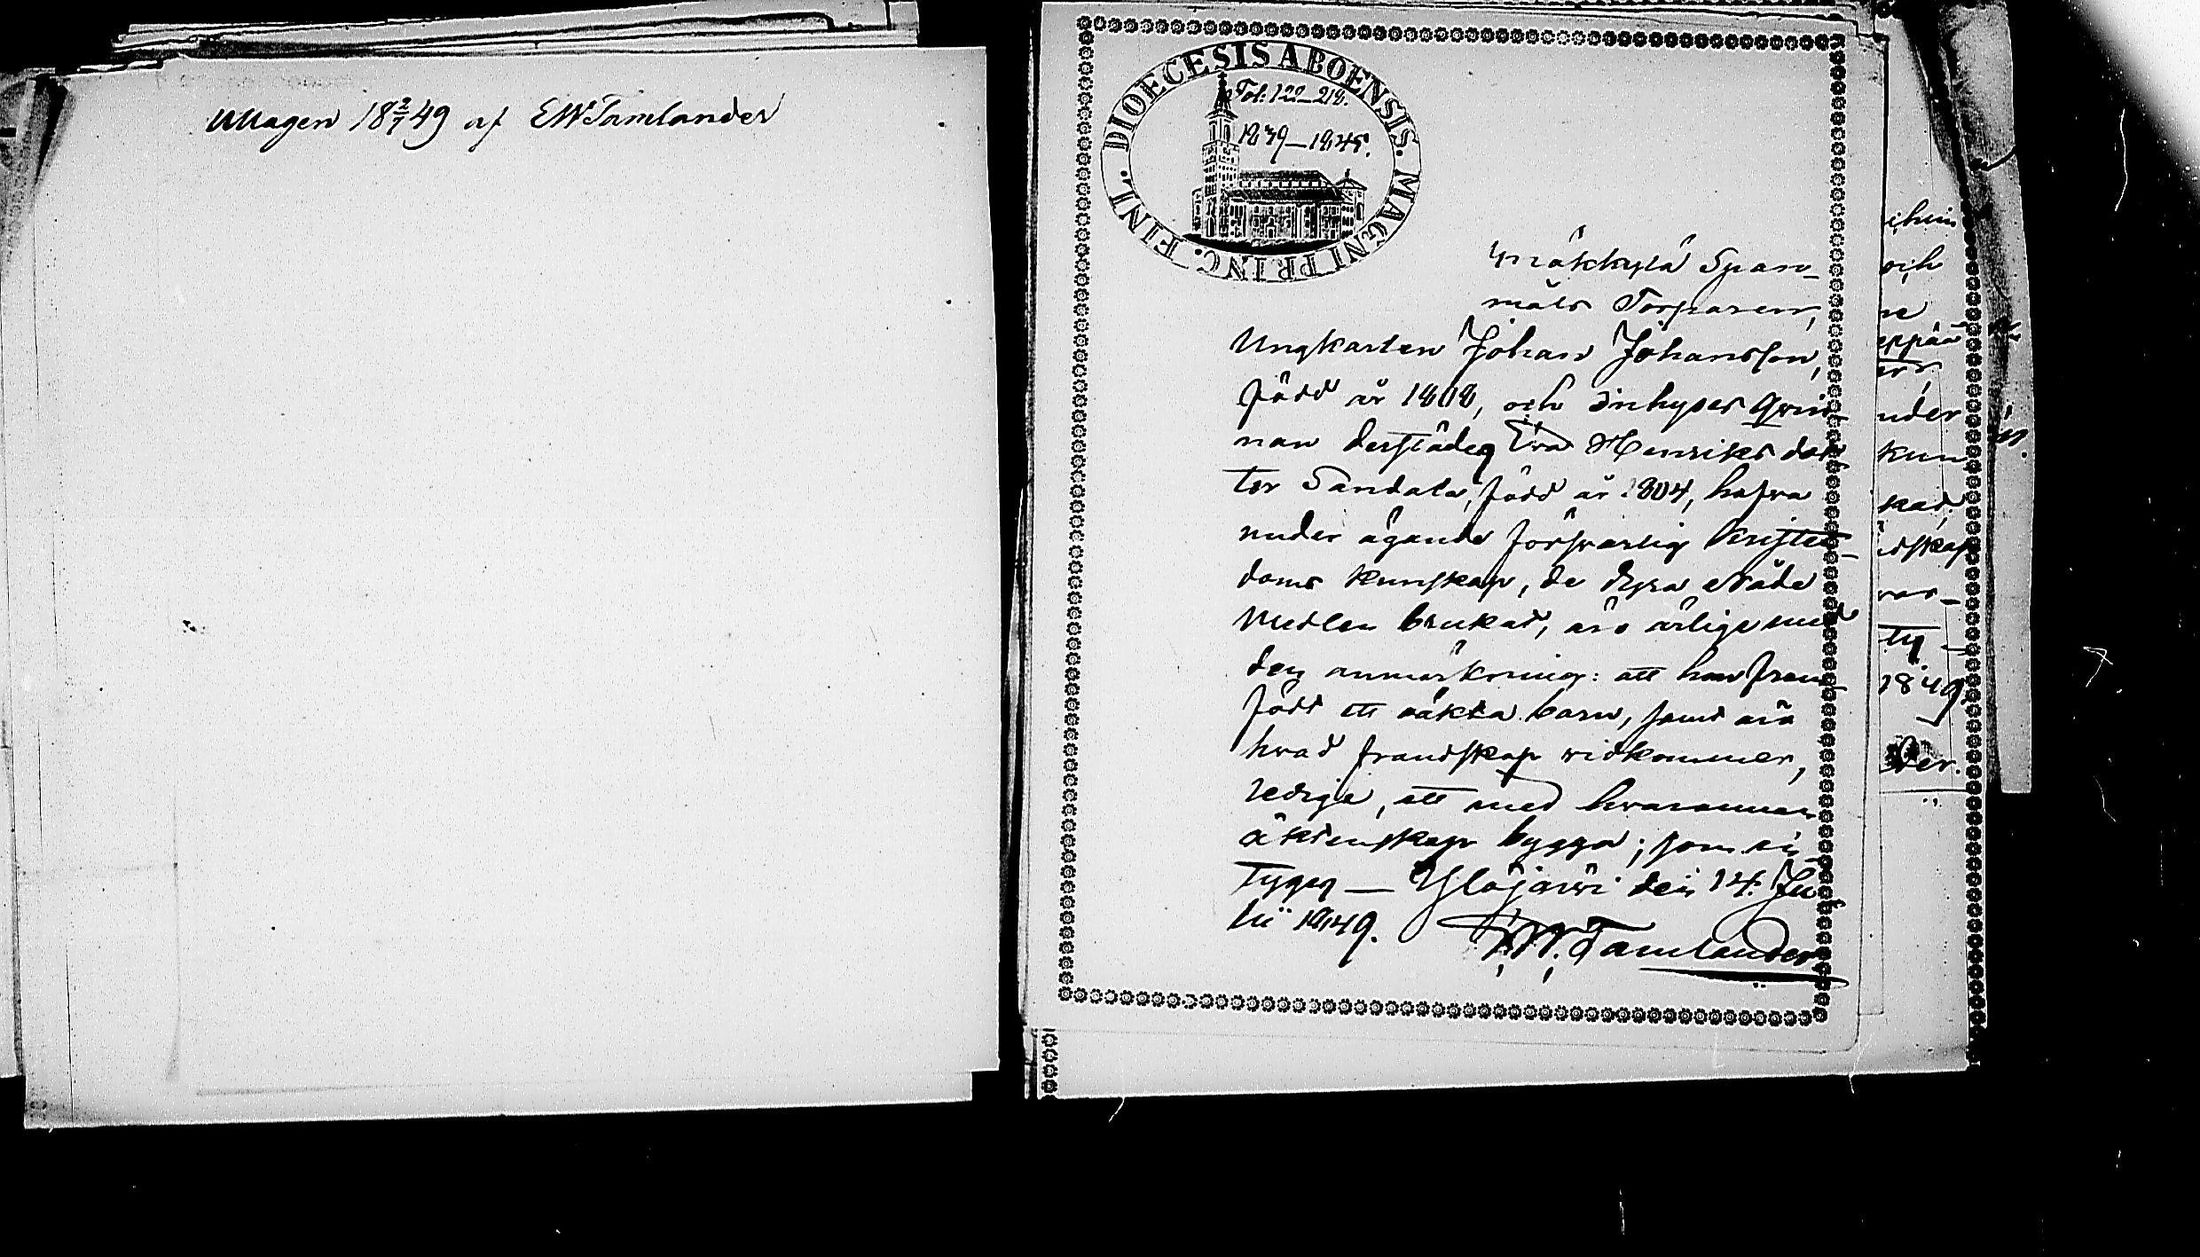 Uttagen 18 2/7 49 af EW Tamlander
DIOECESIS ABOENSIS. MAGNI PRINC. FINL.
Fol: 122–218.
1839–1845.
Mäkkylä Span-
måls Torparen,
Ungkarlen Johan Johansson,
född år 1808, och Inhyses Qwin-
nan derstädes Eva Henriks dot-
ter Sandala, född år 1804, hafva
under ägande försvarlig kristen-
doms kunskap, de dyra Nåde
Medlen brukat, äro ärlige med
den anmärkning: att hon fram-
födt ett oäkta barn, samt äro
hvad frandskap vidkommer,
ledige, att med hvarannan
äktenskap bygga; som be-
tygas — Ylöjärvi den 14. Ju-
lii 1849. EW. Tamlander
och
ne
eppää
nder
kun
skad
dskap
var-
tyg
1849.
der.